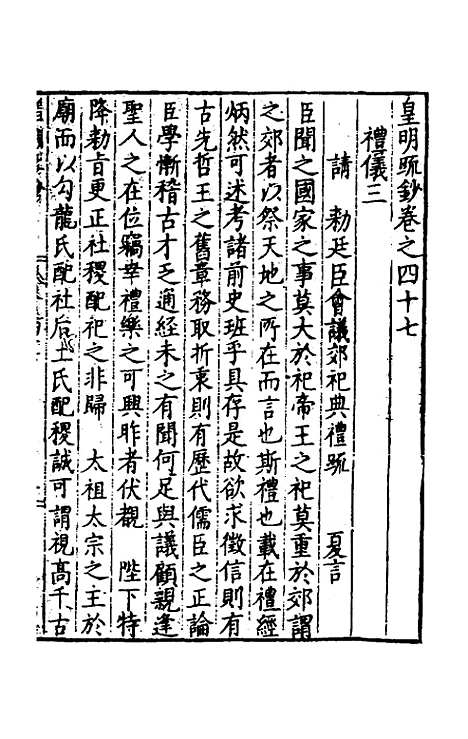 皇明疏鈔卷之四十七
禮儀三
請 勅廷臣會議郊祀典禮疏 夏言
臣聞之國家之事莫大於祀帝王之祀莫重於郊謂
之郊者以祭天地之所在而言也斯禮也載在禮經
炳然可述考諸前史班乎具存是故欲求徵信則有
古先哲王之舊章務取折衷則有歷代儒臣之正論
臣學慚稽古才乏通經未之有聞何足與議顧親逢
聖人之在位竊幸禮樂之可興昨者伏覩 陛下特
降勅旨更正社稷配祀之非歸 太祖太宗之主於
廟而以勾龍氏配社后土氏配稷誠可謂視高千古